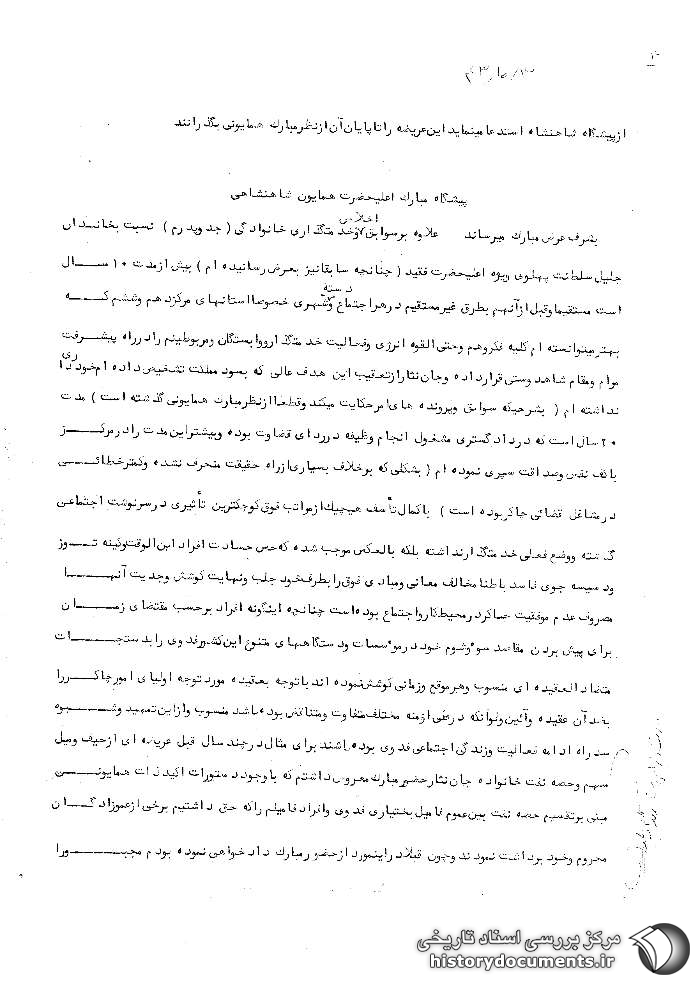 ۴۳/۵/۳۰
از پیشگاه شاهنشاه استدعا مینماید این عریضه را تا پایان آن از نظر مبارك همایونی بگذرانند
پیشگاه مبارك اعلیحضرت همایون شاهنشاهی
بشرف عرض مبارك میرساند علاوه بر سوابق اخلاص و خدمتگذاری خانوادگی ( جد و پدرم ) نسبت بخاندان
جلیل سلطنت پهلوی ویژه اعلیحضرت فقید ( چنانچه سابقا نیز بعرض رسانیده ام ) بیش از مدت ۱۰ سال
است مستقیما و قبل از آنهم بطرق غیر مستقیم در هر اجتماع و دسته و شهری خصوصا استانهای مرکز دهم و ششم که
بهتر میتوانسته ام کلیه فکر و هم و حتی القوه انرژی و فعالیت خدمتگذار و وابستگان و مربوطینم را در راه پیشرفت
مرام و مقام شاهدوستی قرار داده و جان نثار از تعقیب این هدف عالی که بسود مملکت تشخیص داده ام خودداری
نداشته ام ( بشرحیکه سوابق و پرونده های امر حکایت میکند و قطعا از نظر مبارك همایونی گذشته است ) مدت
۲۰ سال است که در دادگستری مشغول انجام وظیفه در ردای قضاوت بوده و بیشتر این مدت را در مرکز
با کف نفس و صداقت سپری نموده ام ( بشکلی که بر خلاف بسیاری از راه حقیقت منحرف نشده و کمتر خطائی
در مشاغل قضائی چاکر بوده است ) با کمال تأسف هیچیك از مراتب فوق کوچکترین تأثیری در سرنوشت اجتماعی
گذشته و وضع فعلی خدمتگذار نداشته بلکه بالعکس موجب شده که حس حسادت افراد ابن الوقت و کینه توز
و دسیسه جوی فاسد باطنا مخالف معانی و مبادی فوق را بطرف خود جلب و نهایت کوشش و جدیت آنها
مصروف عدم موفقیت چاکر در محیط کار و اجتماع بوده است چنانچه اینگونه افراد بر حسب مقتضای زمان
برای پیش بردن مقاصد سوء و شوم خود در موسسات و دستگاههای متنوع این کشور فدوی را بدستجات
متضاد العقیده ای منسوب و هر موقع و زمانی کوشش نموده اند با توجه بعقیده مورد توجه اولیای امور چاکر را
بضد آن عقیده و آئین و لو آنکه در طی ازمنه مختلف متفاوت و متناقض بوده باشد منسوب و از این تمهید و شیوه
سد راه ادامه فعالیت و زندگی اجتماعی فدوی بوده باشند برای مثال در چند سال قبل عریضه ای از حیف و میل
سهم و حصه نفت خانواده جان نثار حضور مبارك معروض داشتم که با وجود دستورات اکید ذات همایونی
مبنی بر تقسیم حصه نفت بین عموم فامیل بختیاری فدوی و افراد فامیلم را که حق داشتیم برخی از عموزادگان
محروم و خود برداشت نمودند و چون قبلا در اینمورد از حضور مبارك دادخواهی نموده بودم مجبورا
مرکز بررسی اسناد تاریخی
historydocuments.ir